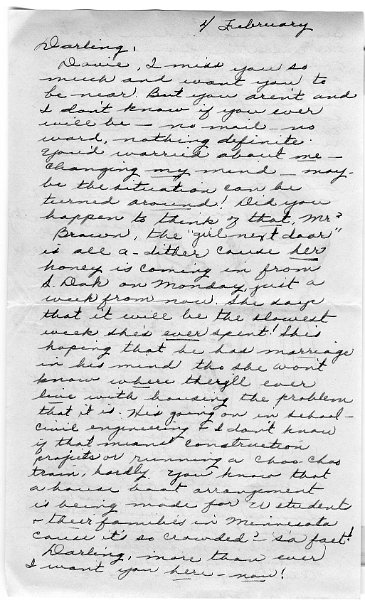 4 February
Darling,
Davie, I miss you so
much and want you to
be near. But you aren't and
I don't know if you ever
will be — no mail — no
word, nothing definite.
You'd worried about me —
changing my mind — may-
be the situation can be
turned around! Did you
happen to think of that, Mr?
Brown, the "girl next door"
is all a-dither cause her
honey is coming in from
S. Dak on Monday, just a
week from now. She says
that it will be the slowest
week she's ever spent! She's
hoping that he has marriage
in his mind tho she won't
know where they'll ever
live with housing the problem
that it is. He's going on in school —
civil engineering & I don't know
if that means construction
projects or running a choo-choo
train, hardly. You know that
a house boat arrangement
is being made for U students
& their families in Minnesota
cause it's so crowded? 'Sa fact!
Darling, more than ever
I want you here — now!